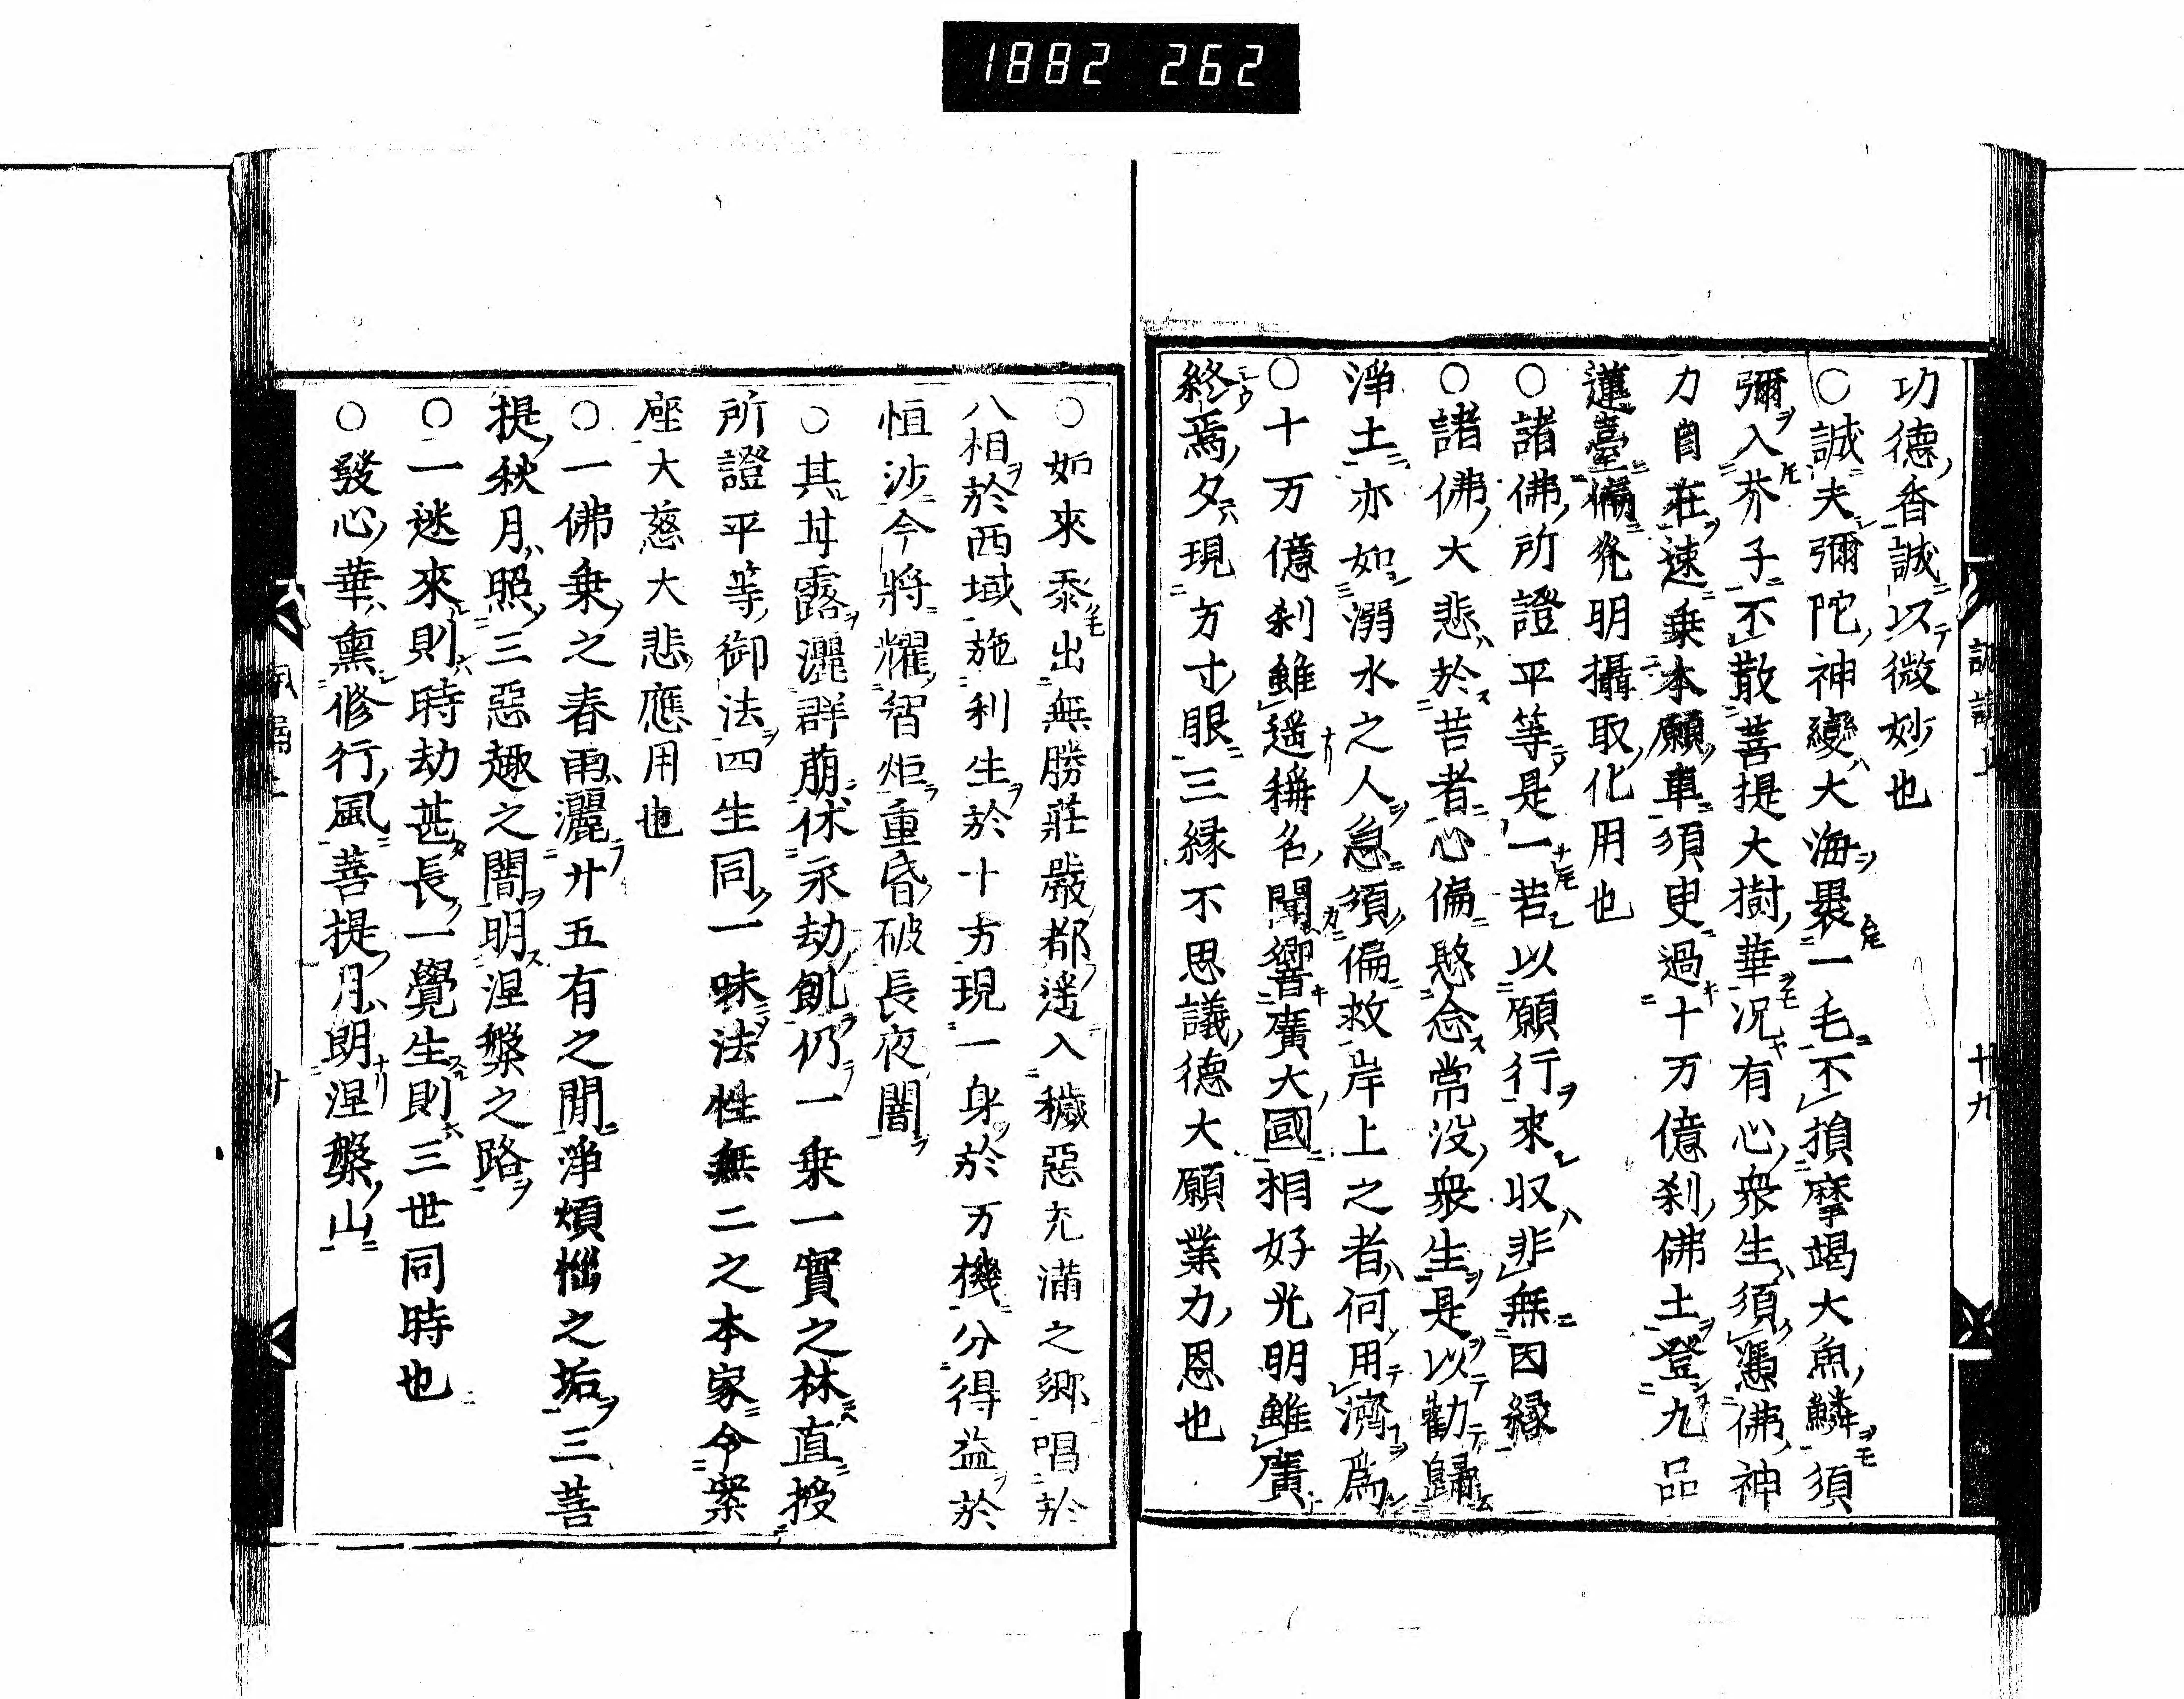 1882 262
功德香誠以微妙也
○誠夫彌陀神變大海褁一毛不損摩竭大魚鱗須
彌入芥子不散菩提大樹華況有心衆生須憑佛神
力自在速乗本願車須更過十万億刹佛土登九品
蓮臺偏光明攝取化用也
○諸佛所證平等是一若以願行來収非無因縁
○諸佛大悲於苦者心偏愍念常没衆生是以勸歸
淨土亦如溺水之人急須偏救岸上之者何用濟為
○十万億刹雖遥稱名聞響廣大國相好光明雖廣
終焉夕現方寸眼三縁不思議德大願業力恩也
十九
○如來忝出無勝莊嚴都遥入穢惡充滿之鄉唱於
八相於西域施利生於十方現一身於万機分得益於
恒沙今將耀智炬重昏破長夜闇
○其甘露灑群萠休永劫飢仍一乗一實之林直授
所證平等御法四生同一味法性無二之本家今案
座大慈大悲應用也
○一佛乗之春雨灑廿五有之間淨煩惱之垢三菩
提秋月照三惡趣之闇明涅槃之路
○一迷來則時劫甚長一覺生則三世同時也
○發心華熏修行風菩提月朗涅槃山